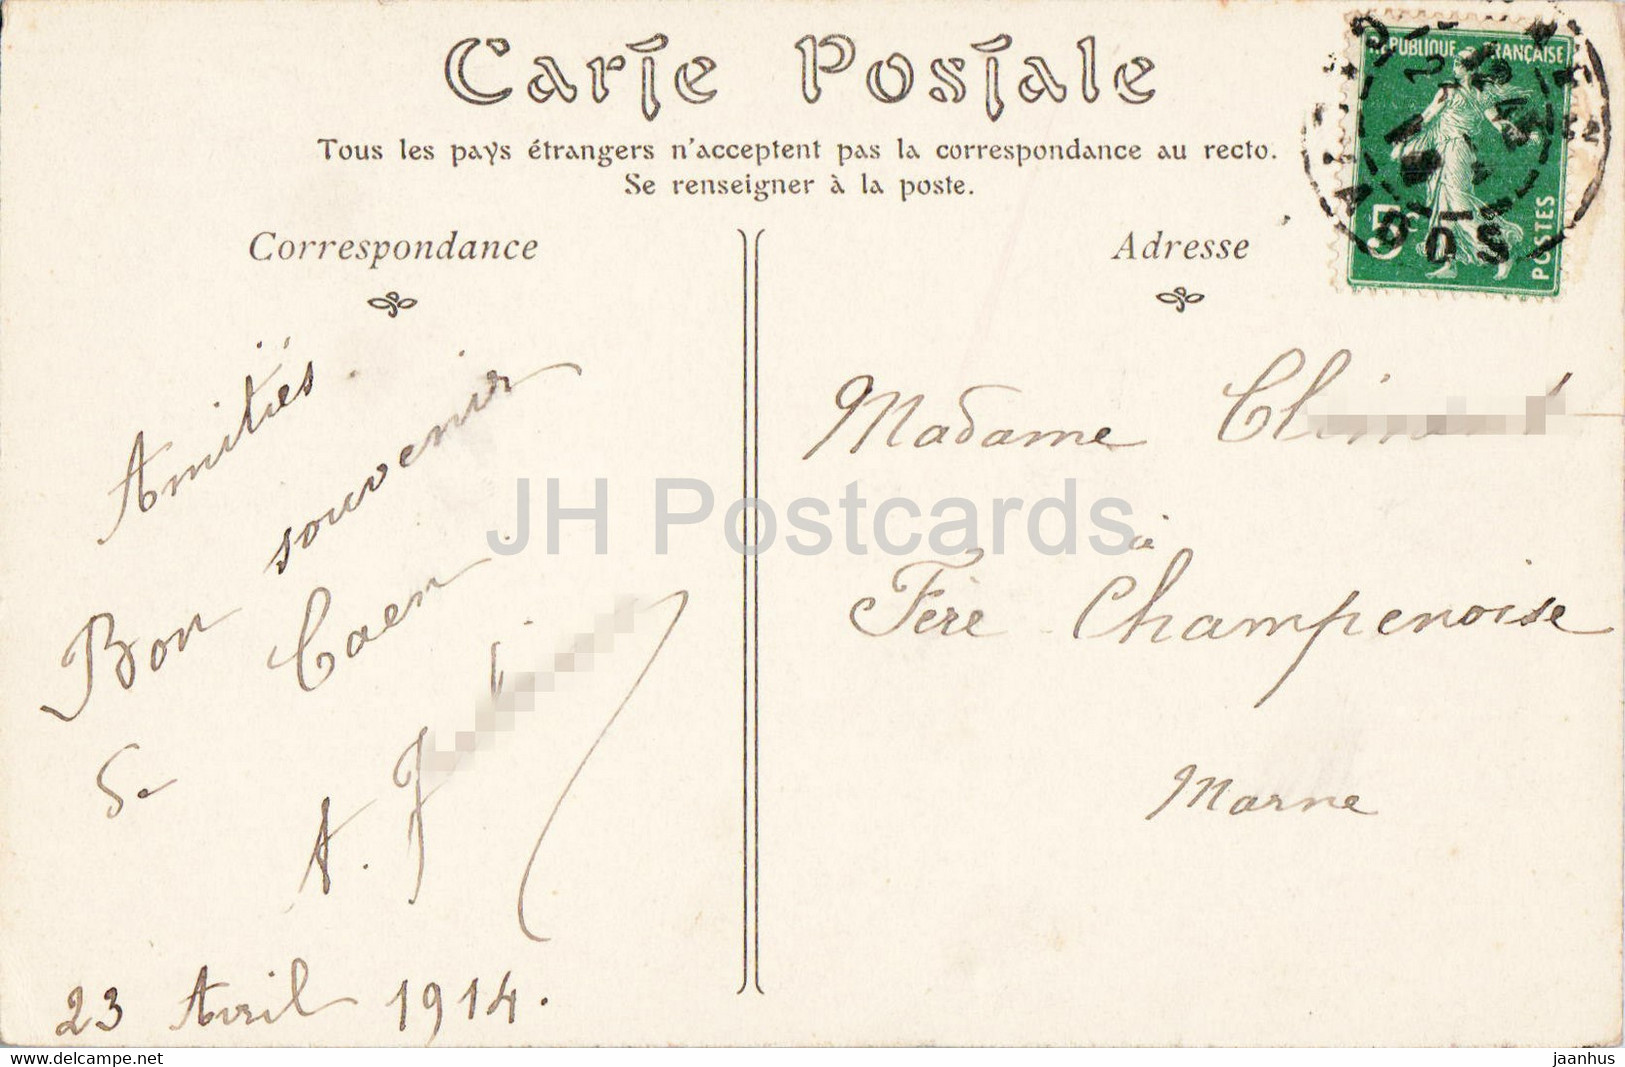 Carte Postale
Tous les pays étrangers n'acceptent pas la correspondance au recto.
Se renseigner à la poste.
Correspondance
Amitiés
Bon souvenir
de Caen
A.
23 Avril 1914.
Adresse
RÉPUBLIQUE FRANÇAISE
5c
POSTES
CALVADOS
Madame
à
Fère Champenoise
Marne
JH Postcards
www.delcampe.net
jaanhus